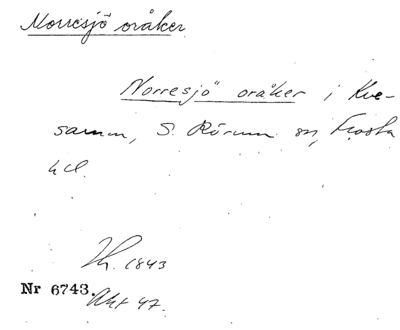 Norresjö oråker
Norresjö oråker i Kve-
samm, S. Rörum sn, Frosta
hd.
Th. 1843
Nr 6743.
Akt 47.